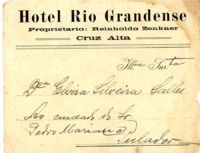 Hotel Rio Grandense
Proprietario: Reinholdo Zenkner
Cruz Alta
Illma Snra
Dna Elvira Silveira Salles
Ao cuidado do Sr
Pedro Mariani
Pulador